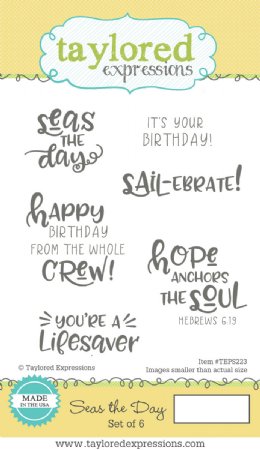 taylored
expressions
seas
the
day
IT'S YOUR
BIRTHDAY!
SAIL-EBRATE!
HAPPY
BIRTHDAY
FROM THE WHOLE
CREW!
HOPE
ANCHORS
THE SOUL
HEBREWS 6:19
YOU'RE A
Lifesaver
Item #TEPS223
© Taylored Expressions
Images smaller than actual size
MADE
IN THE USA
Seas the Day
Set of 6
www.tayloredexpressions.com